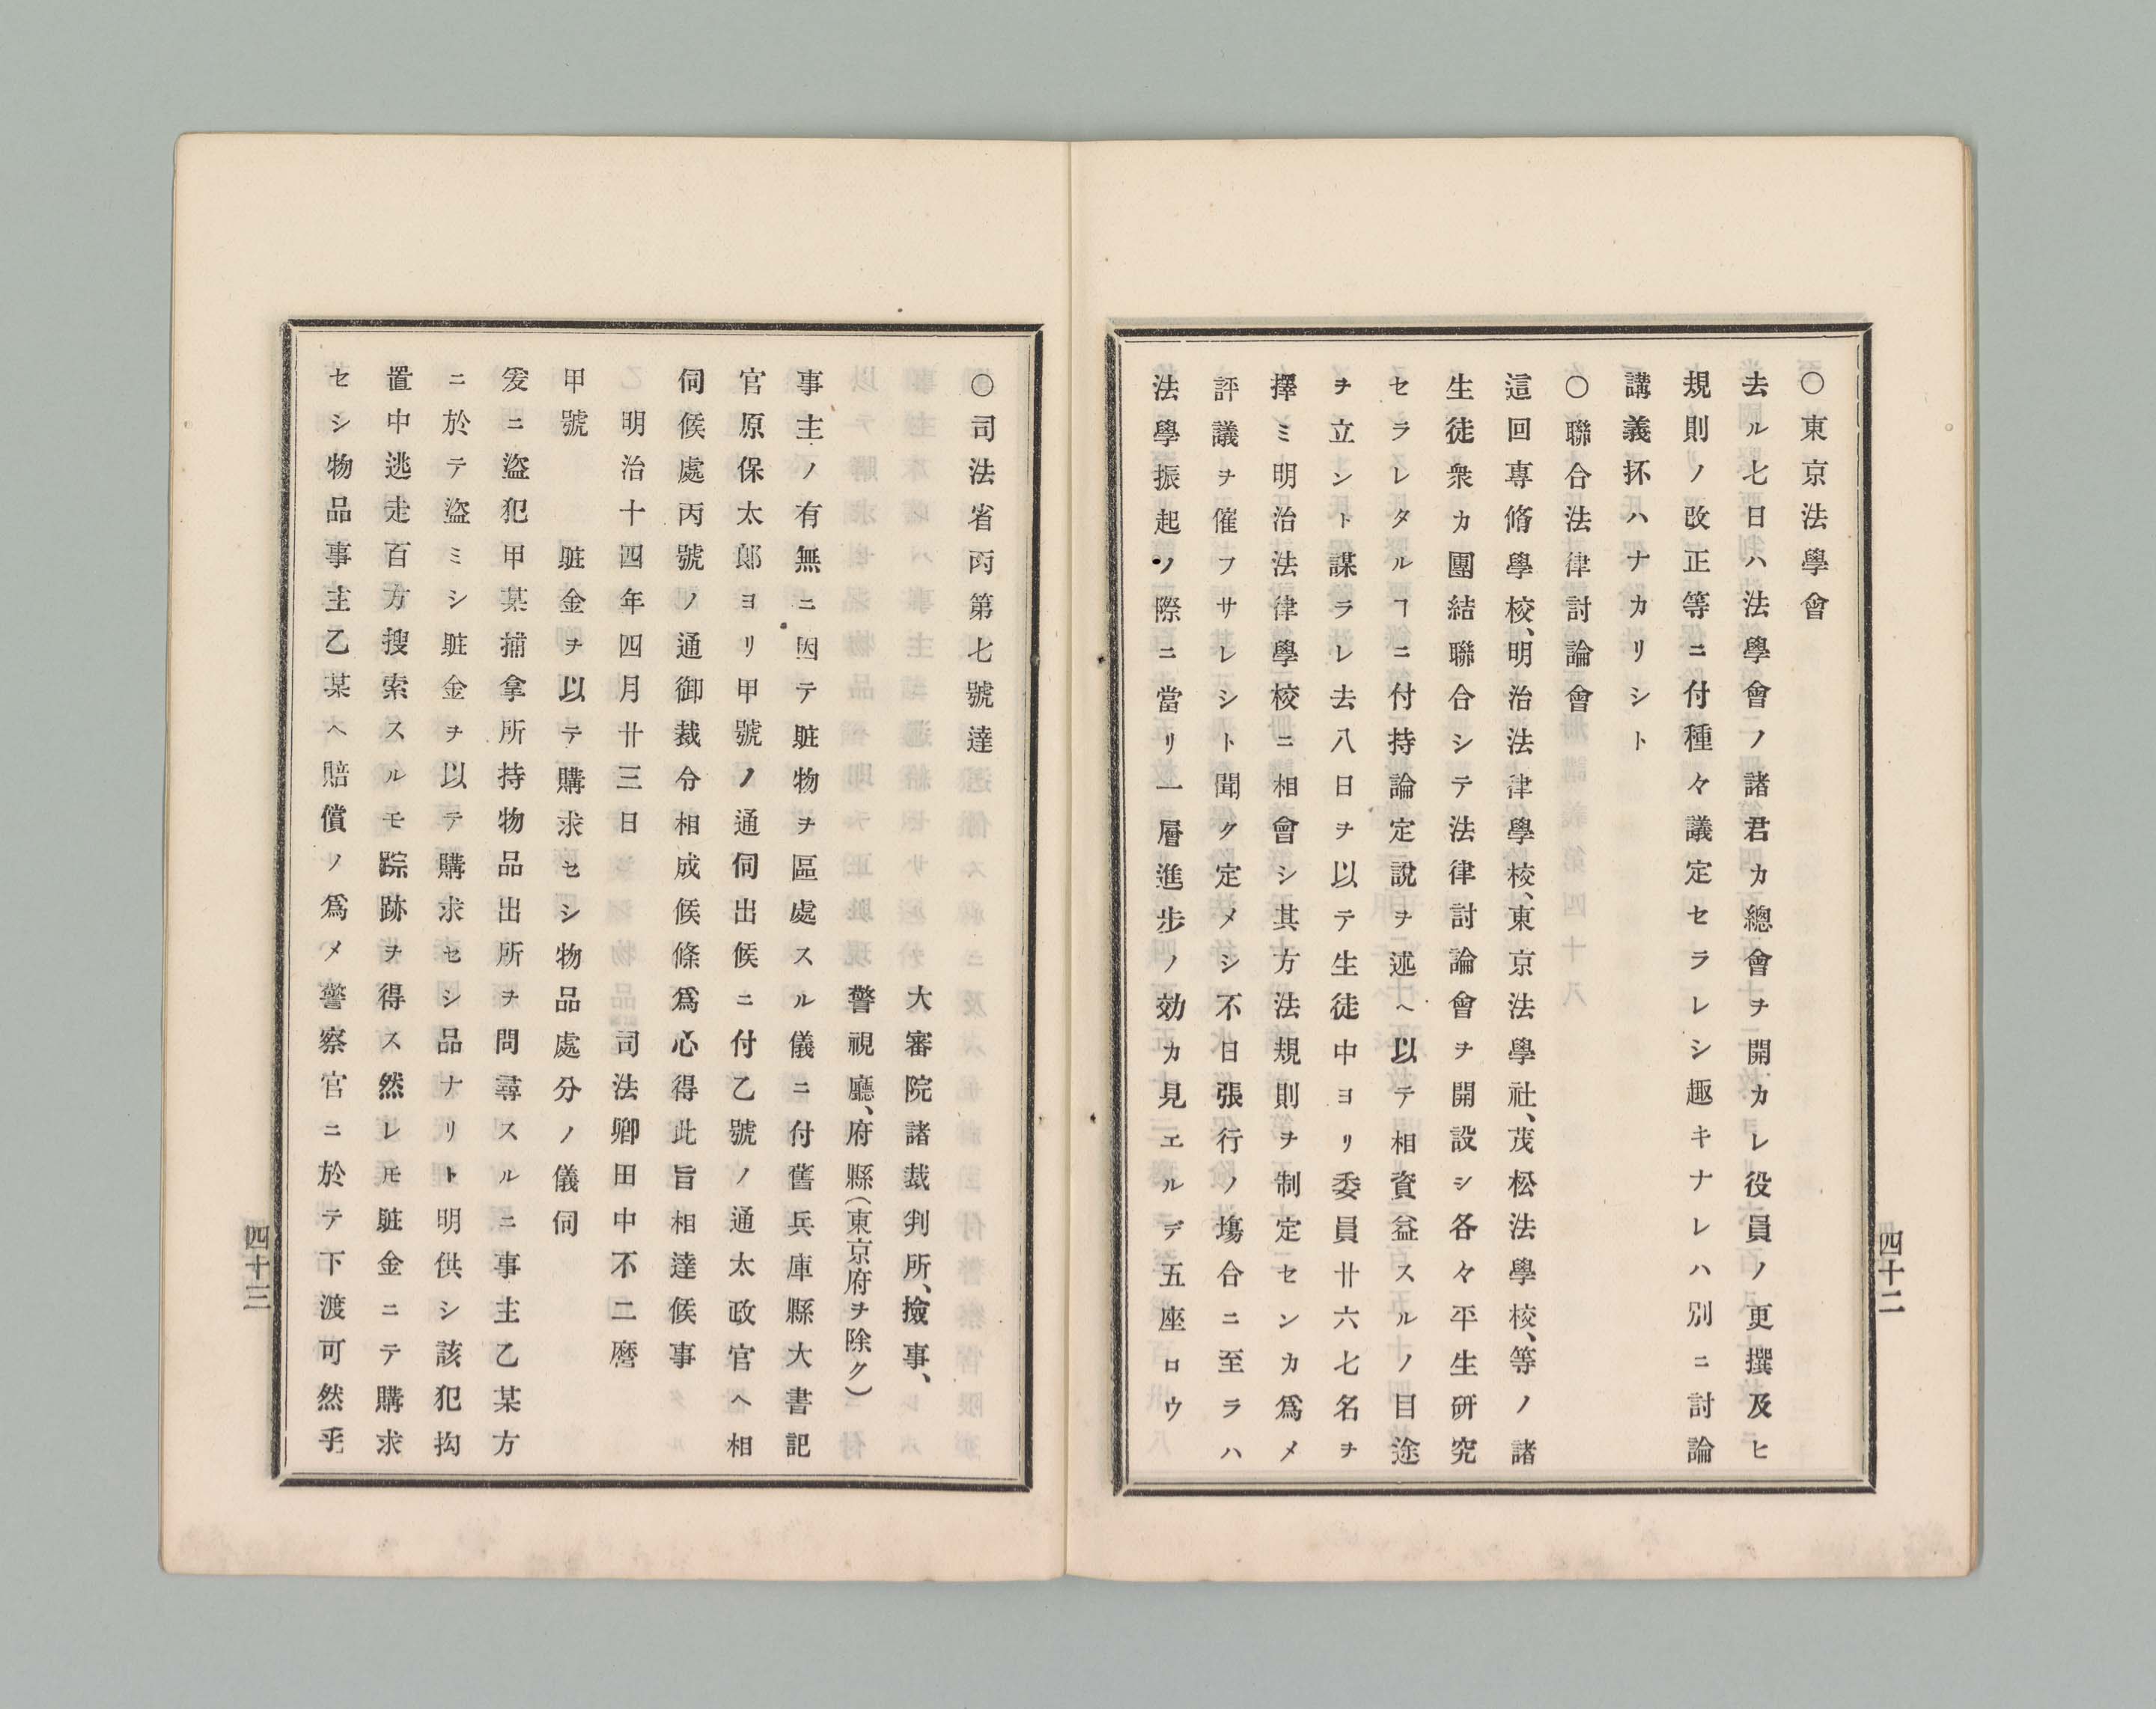 ○東京法學會
去ル七日ハ法學會ノ諸君カ總會ヲ開カレ役員ノ更撰及ヒ
規則ノ改正等ニ付種々議定セラレシ趣キナレハ別ニ討論
講義抔ハナカリシト
○聯合法律討論會
這回専脩學校、明治法律學校、東京法學社、茂松法學校、等ノ諸
生徒衆カ團結聯合シテ法律討論會ヲ開設シ各々平生研究
セラレタルヿニ付持論定說ヲ述ヘ以テ相資益スルノ目途
ヲ立ント謀ラレ去八日ヲ以テ生徒中ヨリ委員廿六七名ヲ
擇ミ明治法律學校ニ相會シ其方法規則ヲ制定センカ爲メ
評議ヲ催フサレシト聞ク定メシ不日張行ノ塲合ニ至ラハ
法學振起ノ際ニ當リ一層進步ノ効カ見エルデ五座ロウ
四十二
○司法省丙第七號達
大審院諸裁判所、撿事、
警視廳、府縣(東京府ヲ除ク)
事主ノ有無ニ因テ賍物ヲ區處スル儀ニ付舊兵庫縣大書記
官原保太郞ヨリ甲號ノ通伺出候ニ付乙號ノ通太政官ヘ相
伺候處丙號ノ通御裁分相成候條爲心得此旨相達候事
明治十四年四月廿三日　司法卿田中不二麿
甲號　賍金ヲ以テ購求セシ物品處分ノ儀伺
爰ニ盜犯甲某捕拿所持物品出所ヲ問尋スルニ事主乙某方
ニ於テ盜ミシ賍金ヲ以テ購求セシ品ナリト明供シ該犯拘
置中逃走百方搜索スルモ踪跡ヲ得ス然レ𪜈賍金ニテ購求
セシ物品事主乙某ヘ賠償ノ爲メ警察官ニ於テ下渡可然乎
四十三